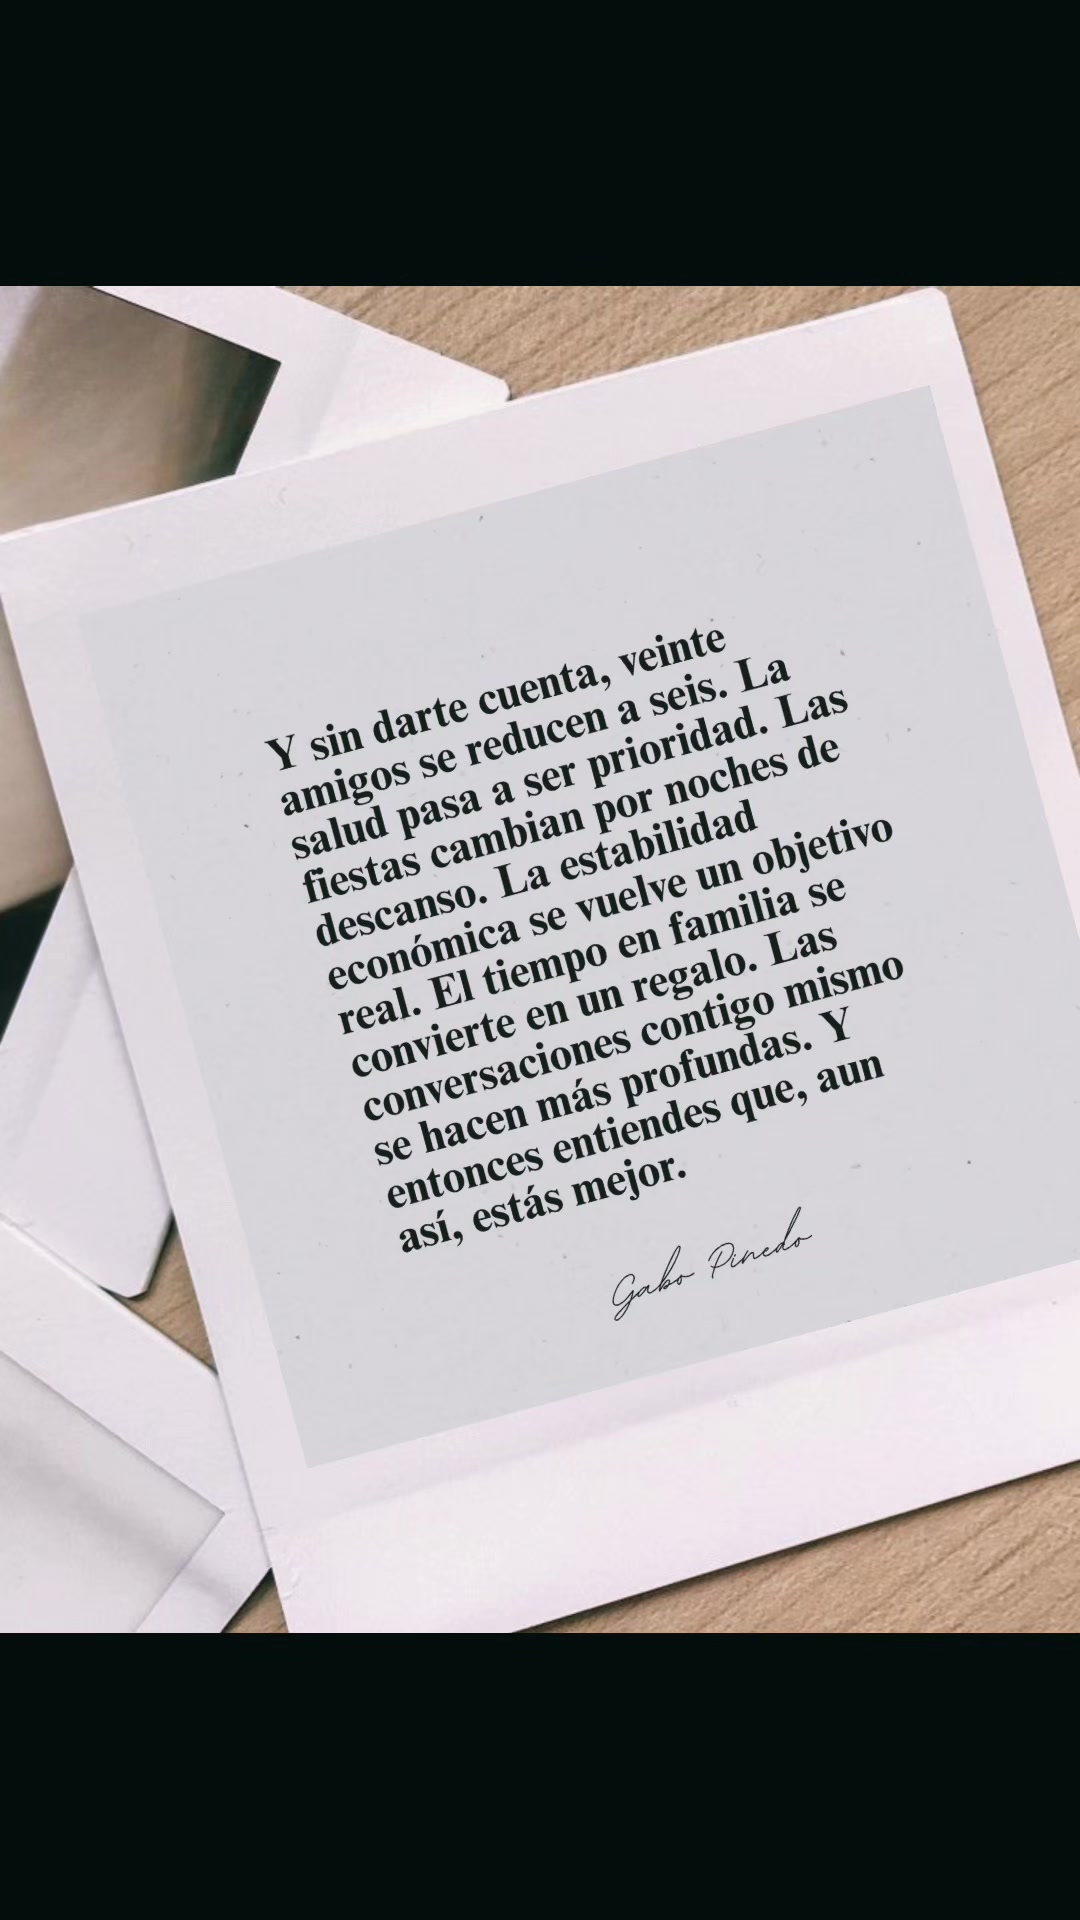 Y sin darte cuenta, veinte
amigos se reducen a seis. La
salud pasa a ser prioridad. Las
fiestas cambian por noches de
descanso. La estabilidad
económica se vuelve un objetivo
real. El tiempo en familia se
convierte en un regalo. Las
conversaciones contigo mismo
se hacen más profundas. Y
entonces entiendes que, aun
así, estás mejor.
Gabo Pinedo